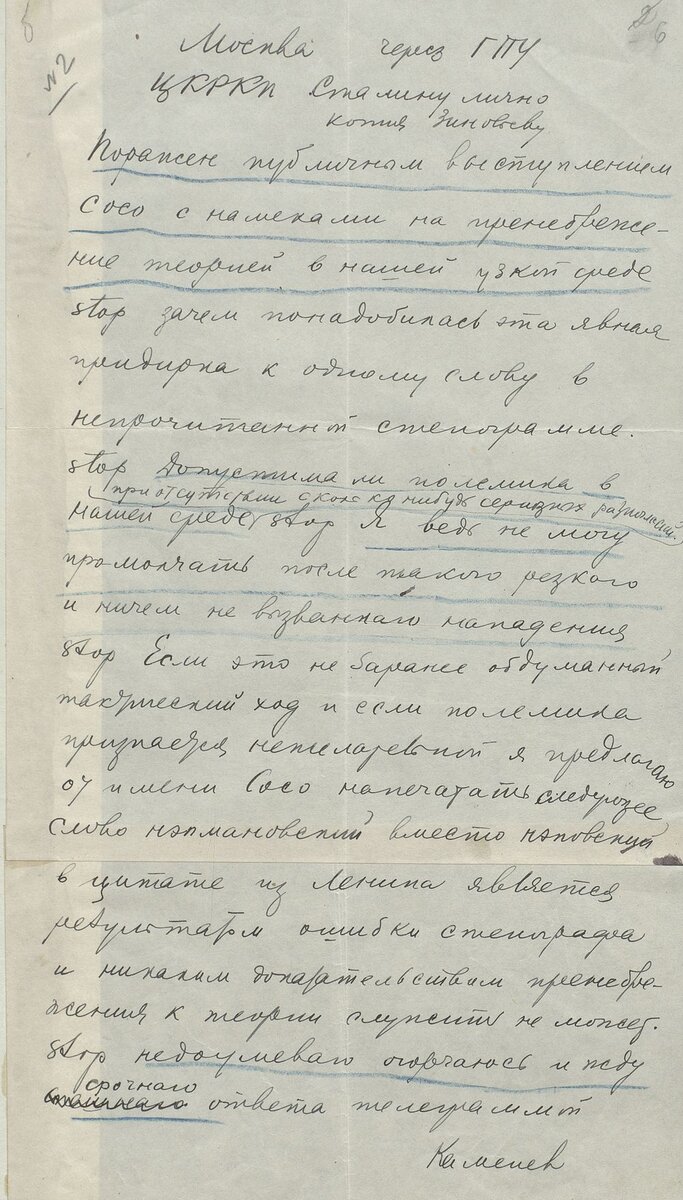 26
№ 2
Москва через ГПУ
ЦКРКП Сталину лично
копия Зиновьеву
Поражен публичным выступлением
Сосо с намеками на пренебреже-
ние теорией в нашей узкой среде
stop зачем понадобилась эта явная
придирка к одному слову в
непрочитанной стенограмме.
stop Допустима ли полемика в
при отсутствии сколько нибудь серьезных разногласий
нашей среде stop Я ведь не могу
промолчать после такого резкого
и ничем не вызваннаго нападения
stop Если это не заранее обдуманный
тактический ход и если полемика
признается нежелательной я предлагаю
от имени Сосо напечатать следующее
слово нэпмановский вместо нэповский
в цитате из Ленина является
результатом ошибки стенографа
и никаким доказательством пренебре-
жения к теории служить не может.
stop недоумеваю огорчаюсь и жду
срочнаго
ответа телеграммой
Каменев